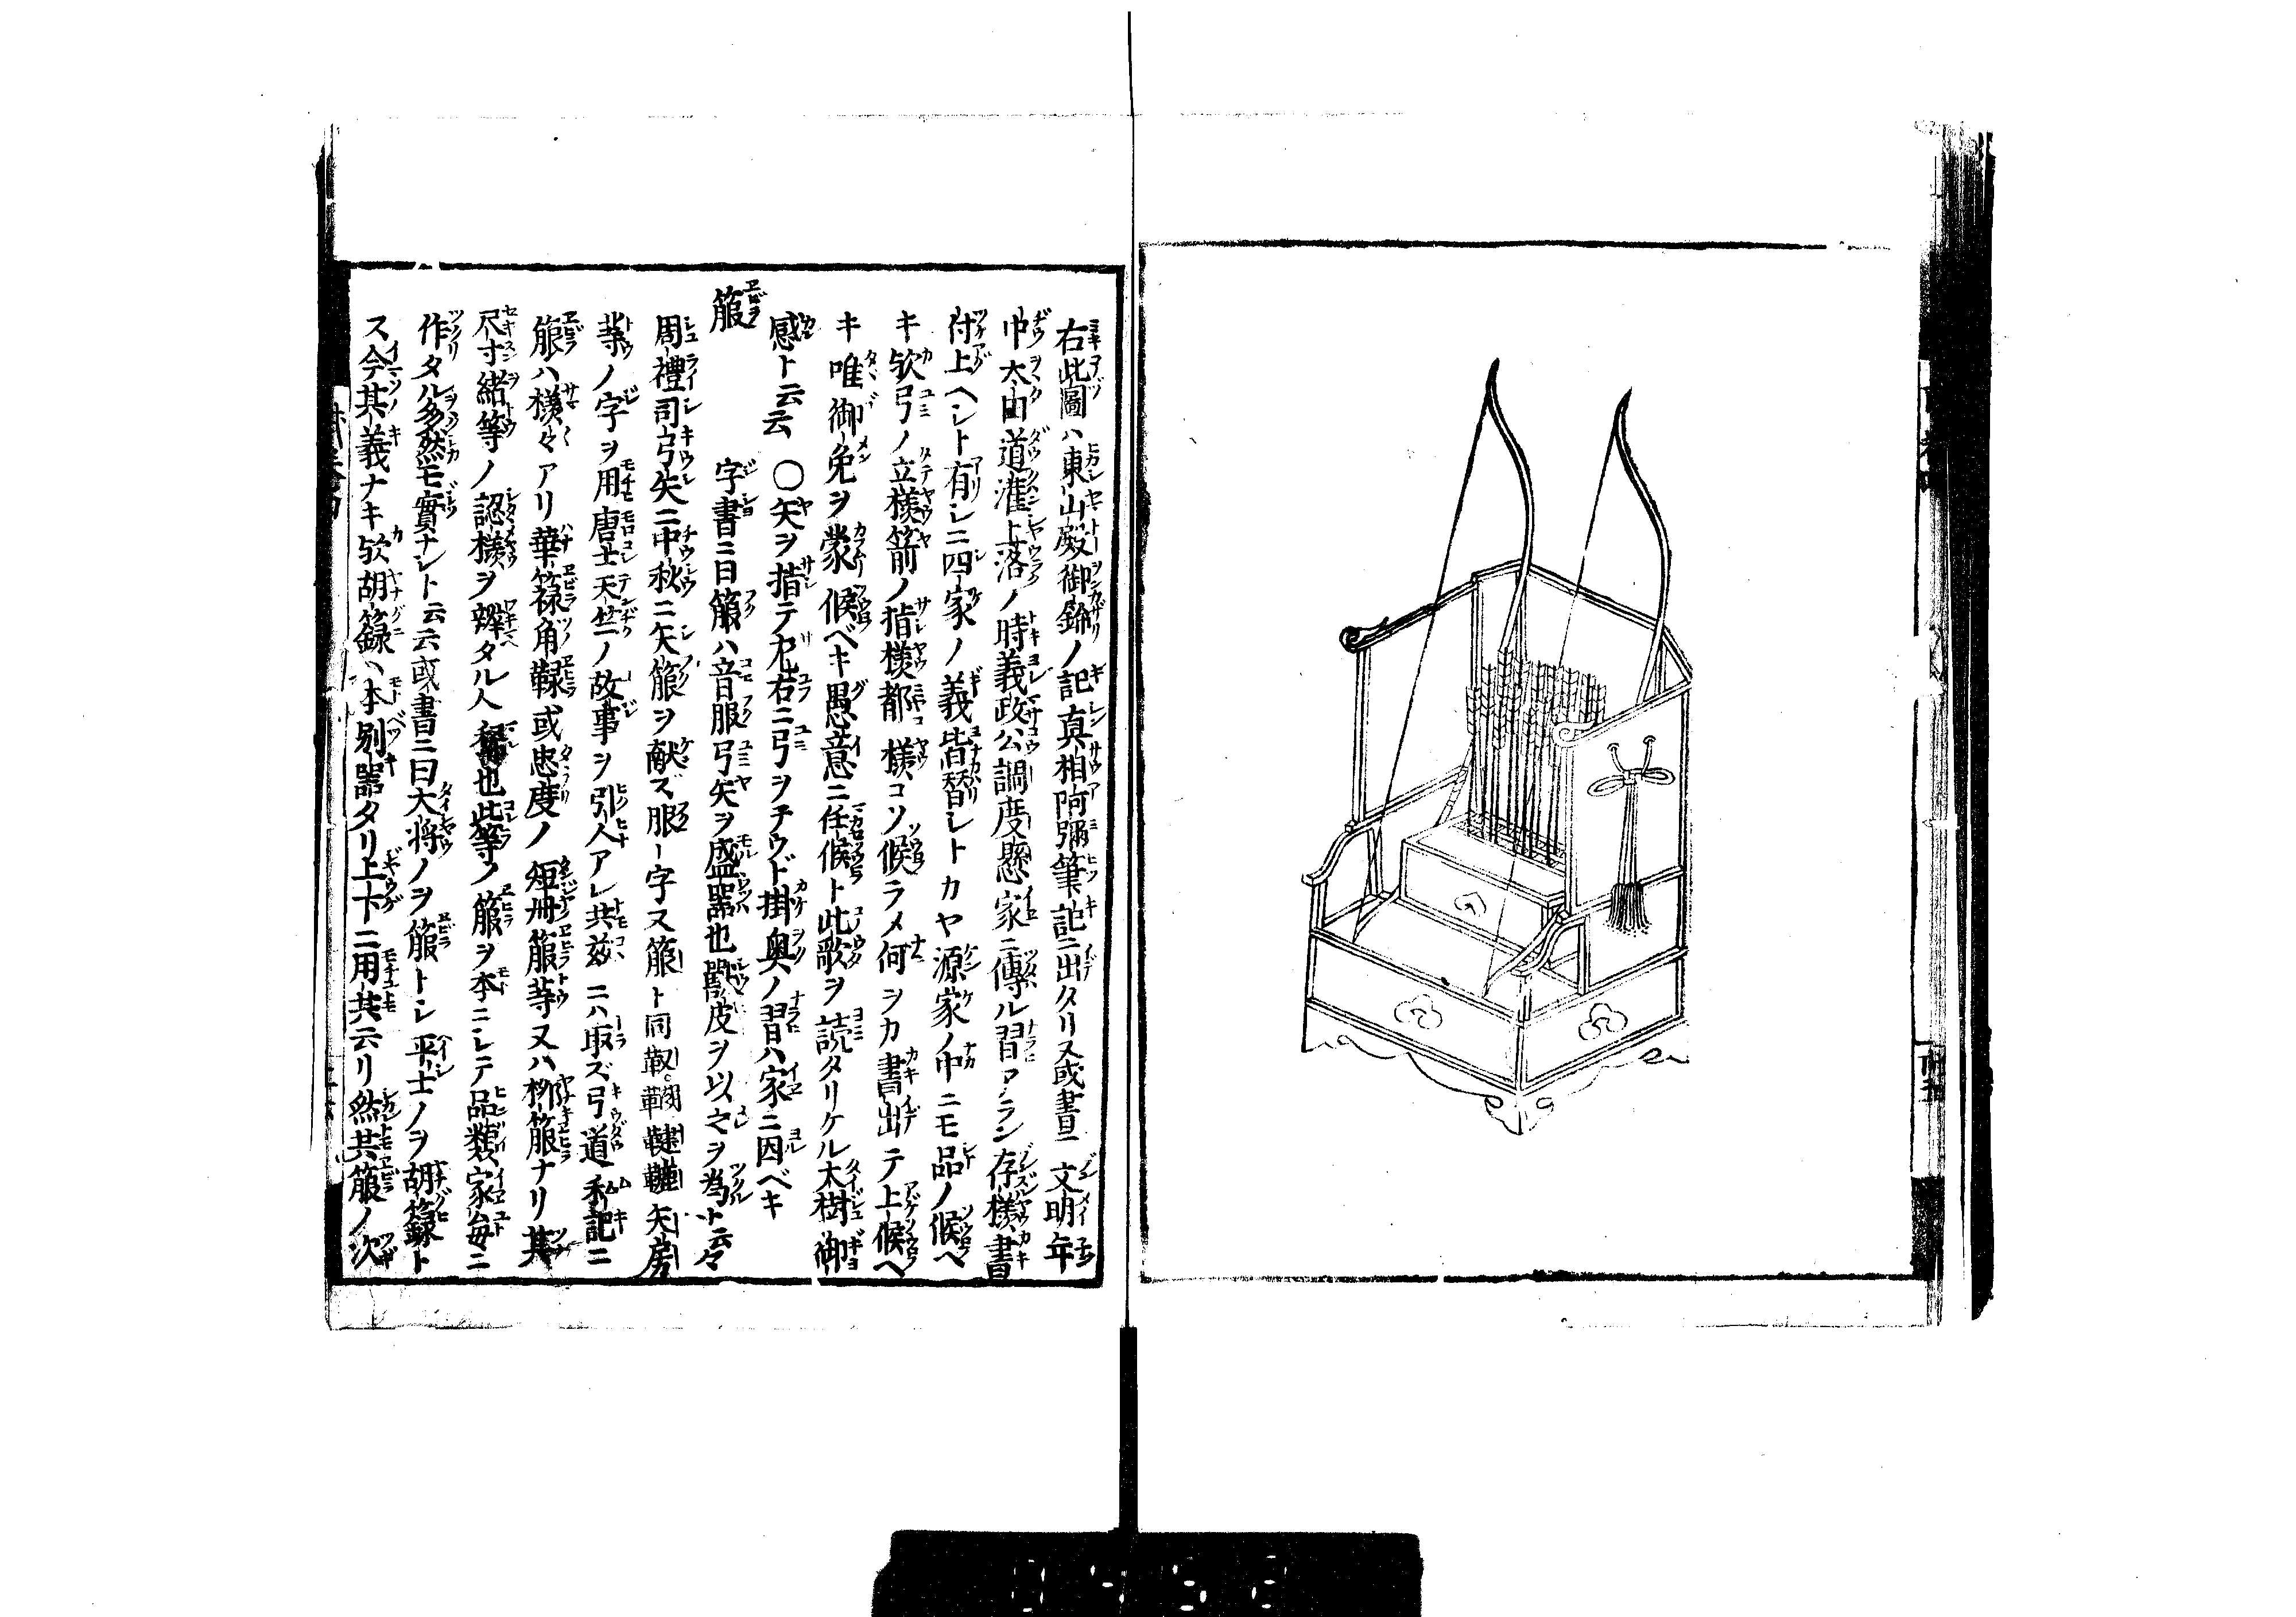 右此圖ハ東山殿御錺ノ記真相阿彌筆記ニ出タリ又或書ニ文明年
中太田道灌上洛ノ時義政公調度懸家ニ傳ル習アラン存樣書
付上ヘシト有シニ四家ノ義皆替レトカヤ源家ノ中ニモ品ノ候ヘ
キ欤弓ノ立樣箭ノ指樣都樣コソ候ラメ何ヲカ書出テ上候ヘ
キ唯御免ヲ蒙候ベキ愚意ニ任候ト此歌ヲ読タリケル大樹御
感ト云云〇矢ヲ指テ左右ニ弓ヲチウド掛奥ノ習ハ家ニ因ベキ
箙 字書ニ曰箙ハ音服弓矢ヲ盛器也皮ヲ以之ヲ為ト云々
周禮司弓矢ニ中秋ニ矢箙ヲ献ズ服ー字又箙ト同矢房
等ノ字ヲ用唐土天竺ノ故事ヲ引人アレ共茲ニハ取ズ弓道私記ニ
箙ハ樣々アリ華箙角箙或忠度ノ短冊箙等又ハ柳箙ナリ其
尺寸緒等ノ認樣ヲ辨タル人稀也此等ノ箙ヲ本ニシテ品類家毎ニ
作タル多然モ實ナシト云云或書ニ曰大将ノヲ箙トシ平士ノヲ胡籙ト
ス今其義ナキ欤胡籙ハ本別器タリ上下ニ用共云リ然共箙ノ次